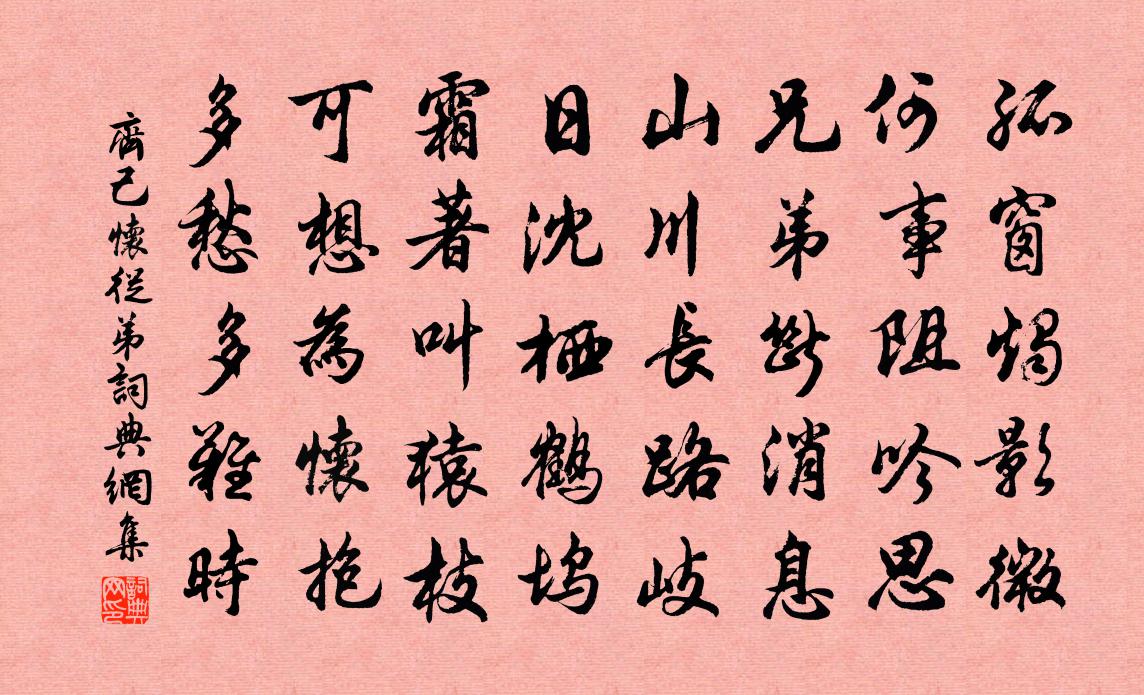 孤窗燭影微
何事阻吟思
兄弟斷消息
山川長路岐
日沈栖鶴塢
霜著叫猿枝
可想為懷抱
多愁多難時
齊己懷從弟詞典網集
詞典網印